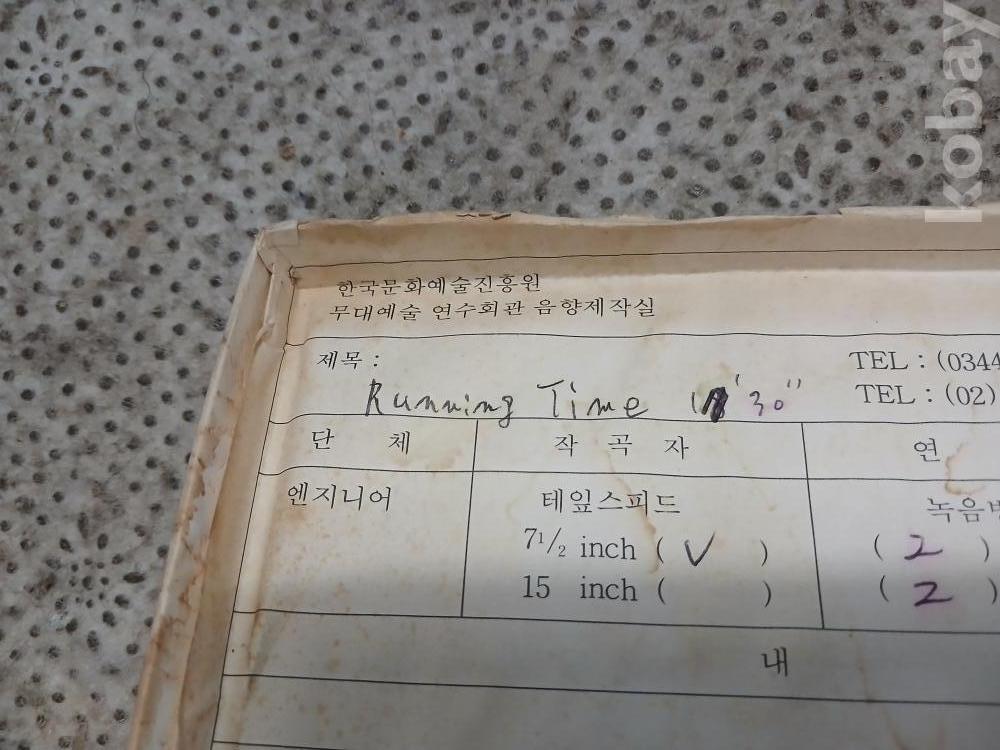 kobay
한국문화예술진흥원
무대예술 연수회관 음향제작실
제목 : TEL : (0344
Running Time '30" TEL : (02)
단 체 작 곡 자 연
엔지니어 테잎스피드 녹음
7 1/2 inch ( V ) ( 2 )
15 inch ( ) ( 2 )
내